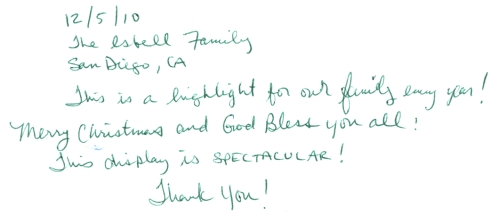 12/5/10
The Isbell Family
San Diego, CA
This is a highlight for our family every year!
Merry Christmas and God Bless you all!
This display is SPECTACULAR!
Thank You!